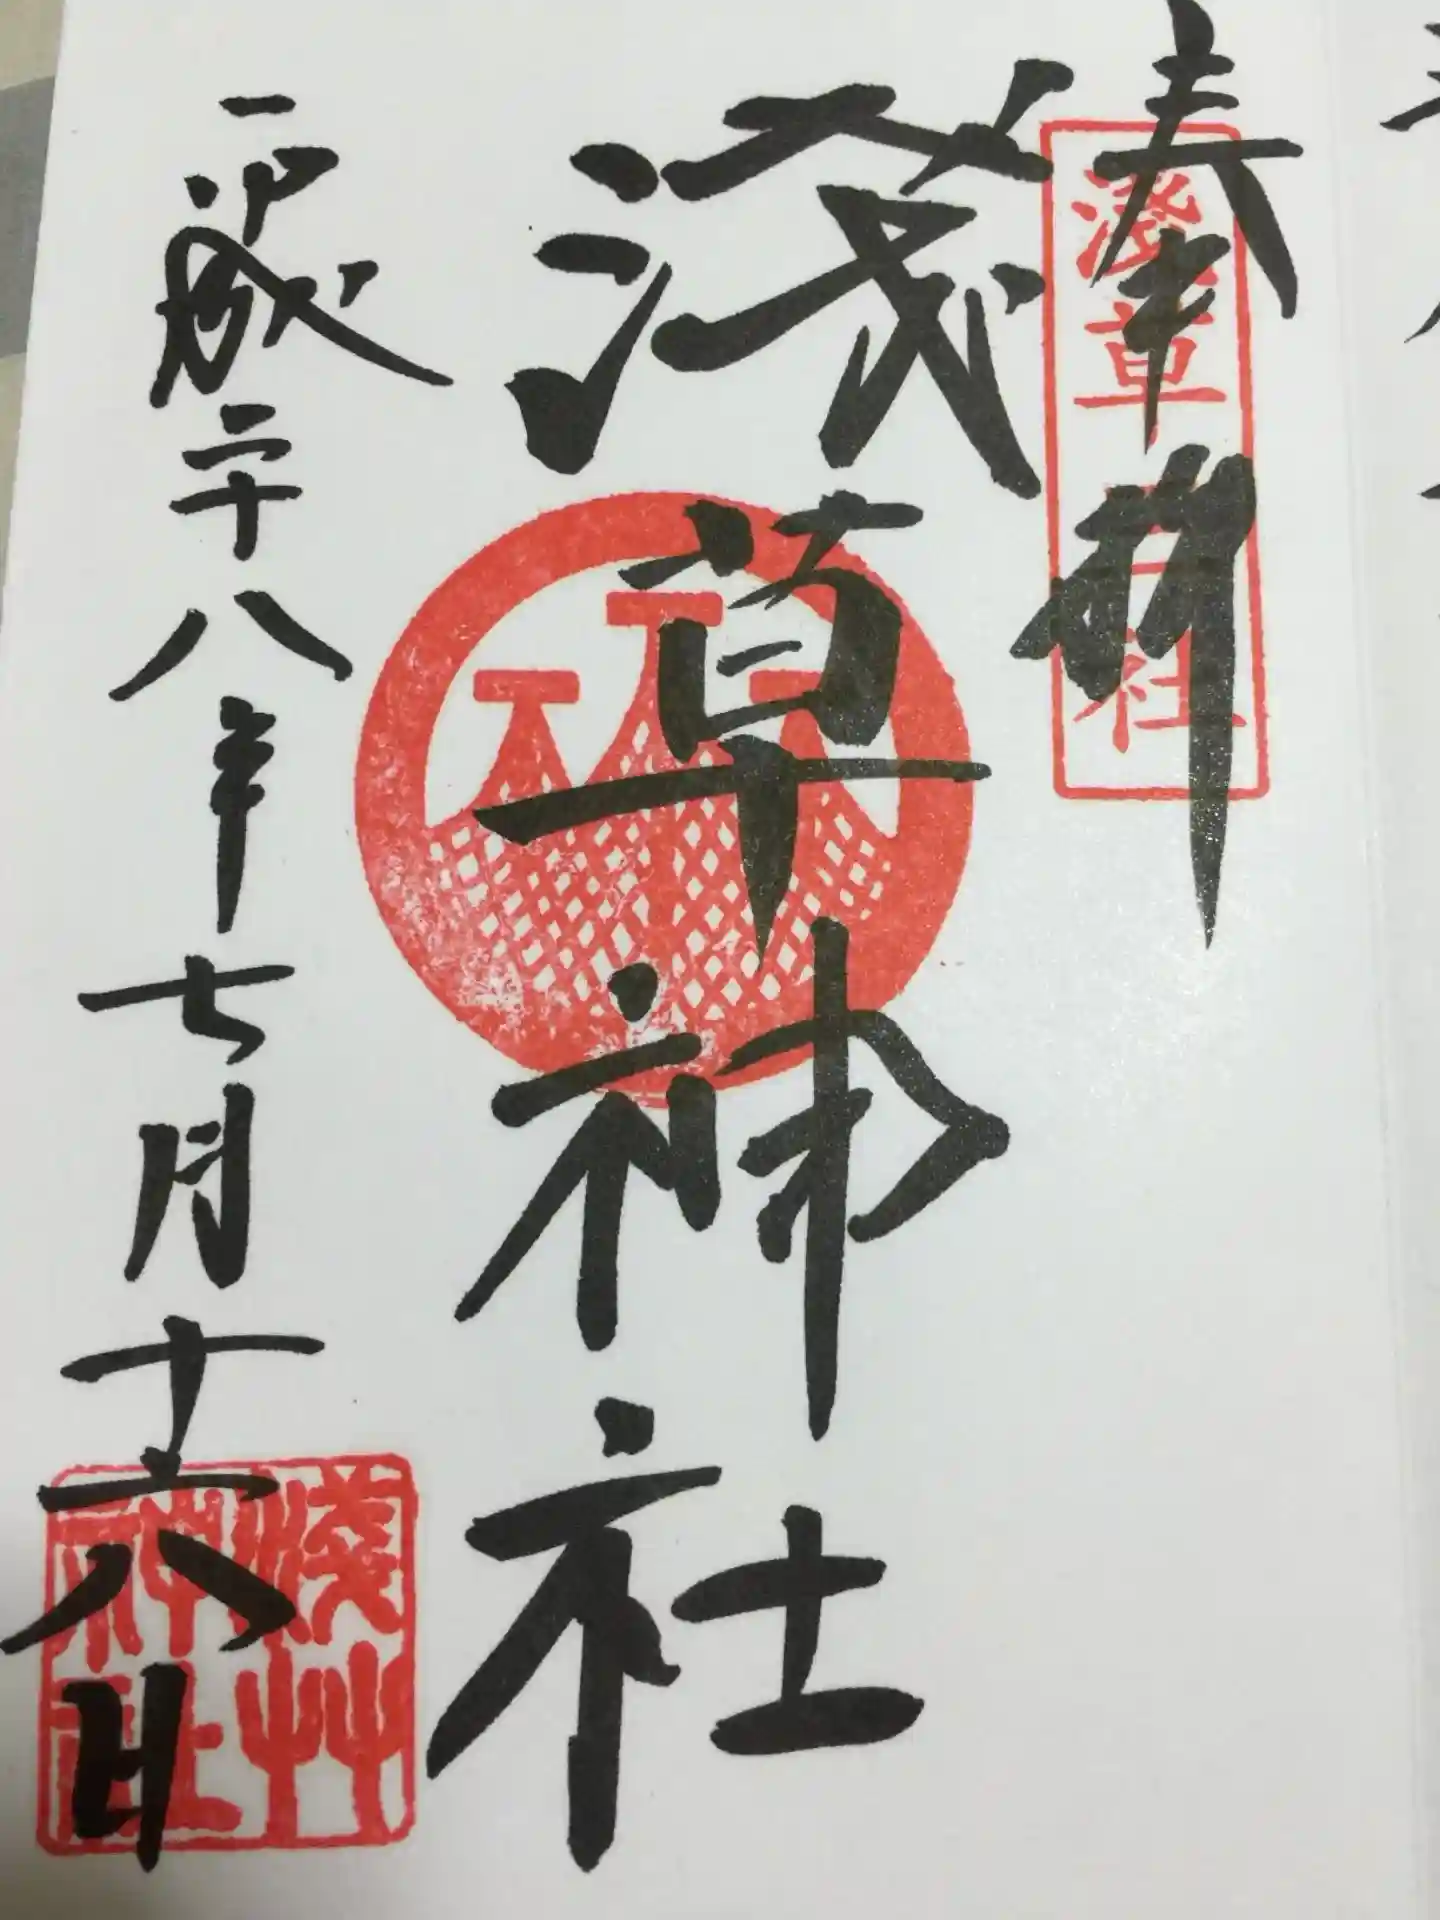 奉拝
浅草名社
浅草神社
平成二十八年七月十六日
浅草神社